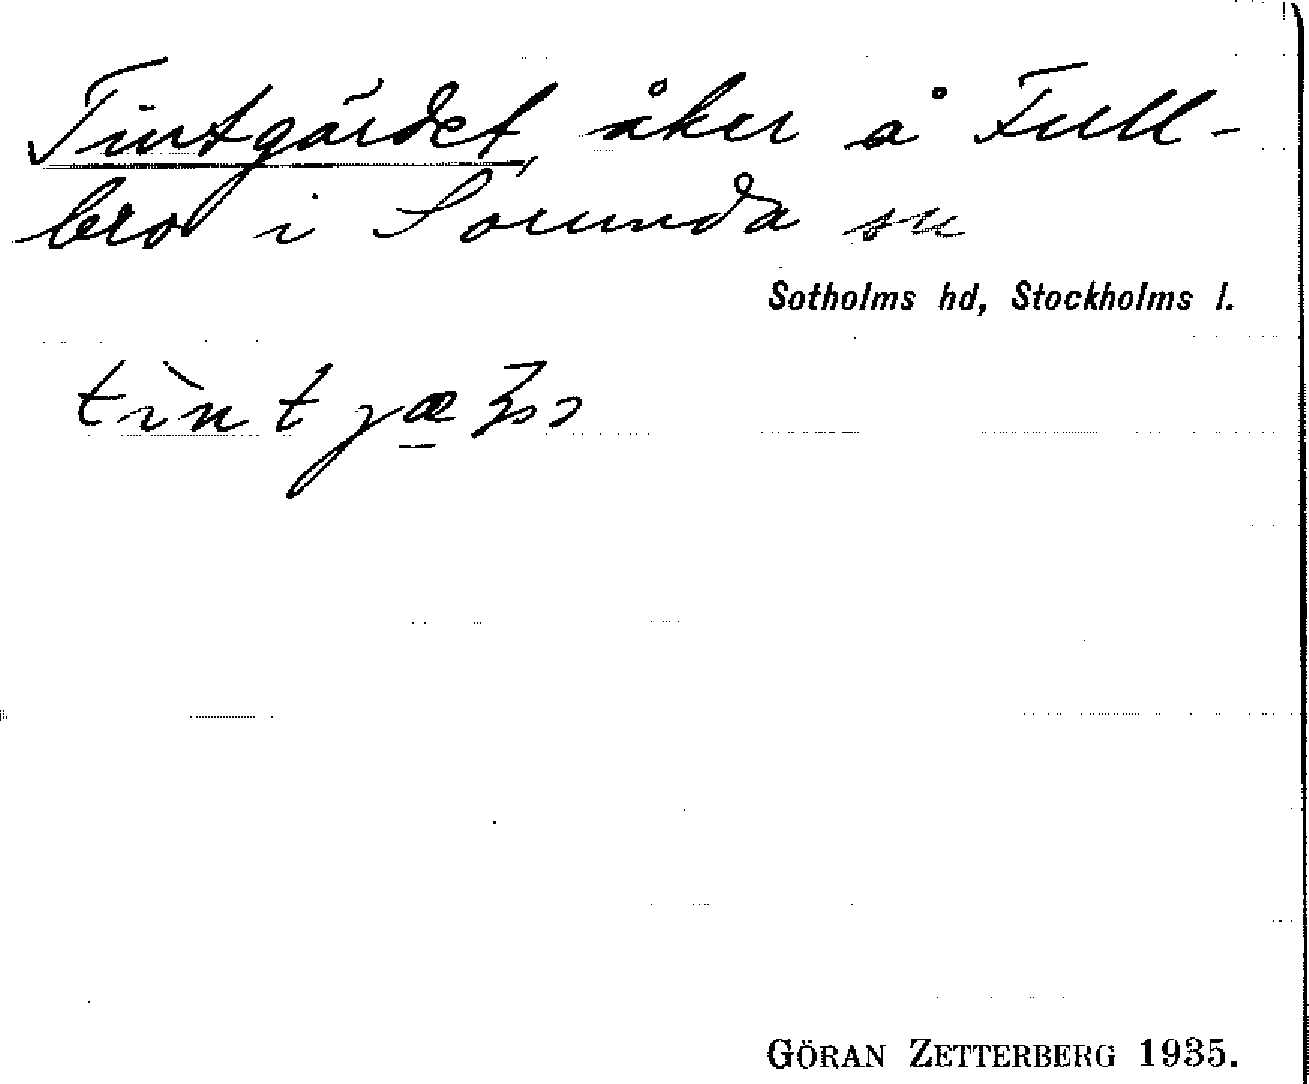 Tintgärdet, åker å Full-
bro i Sorunda sn
Sotholms hd, Stockholms l.
GÖRAN ZETTERBERG 1935.